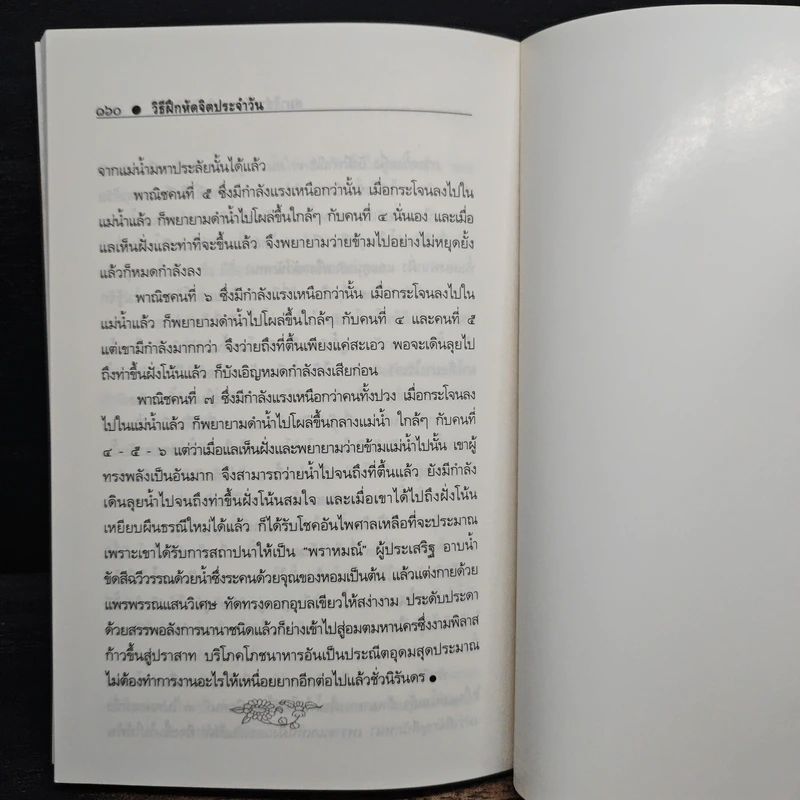 ๑๖๐ ● วิธีฝึกหัดจิตประจำวัน
จากแม่น้ำมหาประลัยนั้นได้แล้ว
พาณิชคนที่ ๕ ซึ่งมีกำลังแรงเหนือกว่านั้น เมื่อกระโจนลงไปใน
แม่น้ำแล้ว ก็พยายามดำน้ำไปโผล่ขึ้นใกล้ๆ กับคนที่ ๔ นั่นเอง และเมื่อ
แลเห็นฝั่งและท่าที่จะขึ้นแล้ว จึงพยายามว่ายข้ามไปอย่างไม่หยุดยั้ง
แล้วก็หมดกำลังลง
พาณิชคนที่ ๖ ซึ่งมีกำลังแรงเหนือกว่านั้น เมื่อกระโจนลงไปใน
แม่น้ำแล้ว ก็พยายามดำน้ำไปโผล่ขึ้นใกล้ๆ กับคนที่ ๔ และคนที่ ๕
แต่เขามีกำลังมากกว่า จึงว่ายถึงที่ตื้นเพียงแค่สะเอว พอจะเดินลุยไป
ถึงท่าขึ้นฝั่งโน้นแล้ว ก็บังเอิญหมดกำลังลงเสียก่อน
พาณิชคนที่ ๗ ซึ่งมีกำลังแรงเหนือกว่าคนทั้งปวง เมื่อกระโจนลง
ไปในแม่น้ำแล้ว ก็พยายามดำน้ำไปโผล่ขึ้นกลางแม่น้ำ ใกล้ๆ กับคนที่
๔ - ๕ - ๖ แต่ว่าเมื่อแลเห็นฝั่งและพยายามว่ายข้ามแม่น้ำไปนั้น เขาผู้
ทรงพลังเป็นอันมาก จึงสามารถว่ายน้ำไปจนถึงที่ตื้นแล้ว ยังมีกำลัง
เดินลุยน้ำไปจนถึงท่าขึ้นฝั่งโน้นสมใจ และเมื่อเขาได้ไปถึงฝั่งโน้น
เหยียบผืนธรณีใหม่ได้แล้ว ก็ได้รับโชคอันไพศาลเหลือที่จะประมาณ
เพราะเขาได้รับการสถาปนาให้เป็น “พราหมณ์” ผู้ประเสริฐ อาบน้ำ
ขัดสีฉวีวรรณด้วยน้ำซึ่งระคนด้วยจุณของหอมเป็นต้น แล้วแต่งกายด้วย
แพรพรรณแสนวิเศษ ทัดทรงดอกอุบลเขียวให้สง่างาม ประดับประดา
ด้วยสรรพอลังการนานาชนิดแล้วก็ย่างเข้าไปสู่อมตมหานครซึ่งงามพิลาส
ก้าวขึ้นสู่ปราสาท บริโภคโภชนาหารอันเป็นประณีตอุดมสุดประมาณ
ไม่ต้องทำการงานอะไรให้เหนื่อยยากอีกต่อไปแล้วชั่วนิรันดร ●